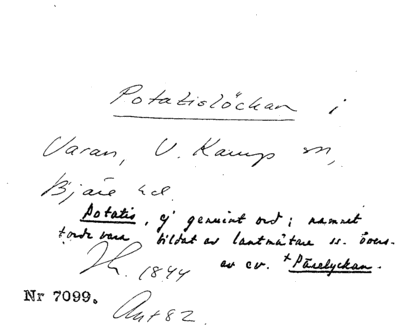 Potatislöckan i
Varan, V. Karup sn,
Bjäre hd.
Potatis, ej genuint ord; namnet
torde vara bildat av lantmätare ss. övers.
av ev. +Pärelyckan.
1844
Nr 7099. Ant 82.